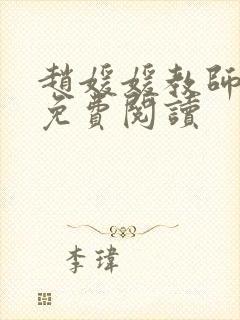 趙媛媛教師
免費閱讀
李瑋